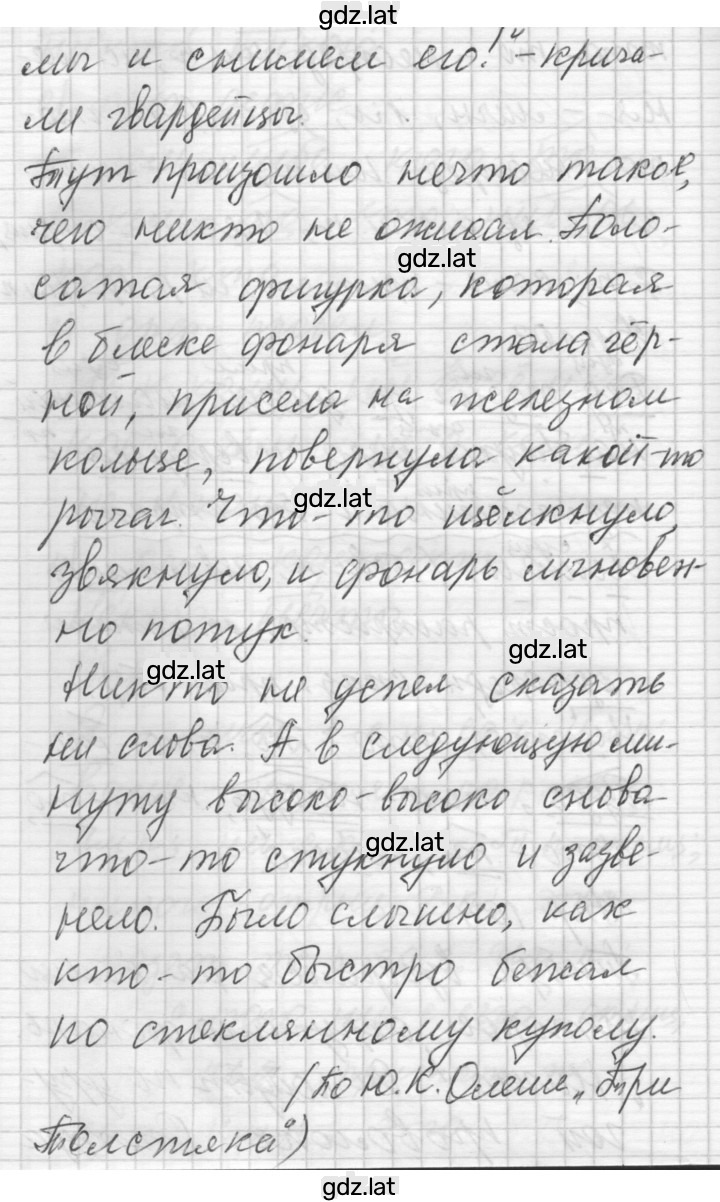 gdz.lat
мы и снимем его!" - крича-
ли гвардейцы.
Тут произошло нечто такое,
чего никто не ожидал. Поло-
gdz.lat
сатая фигурка, которая
в блеске фонаря стала чёр-
ной, присела на железном
кольце, повернула какой-то
gdz.lat
рычаг. Что-то щёлкнуло,
звякнуло, и фонарь мгновен-
но потух.
gdz.lat
gdz.lat
Никто не успел сказать
ни слова. А в следующую ми-
нуту высоко-высоко снова
gdz.lat
что-то стукнуло и зазве-
нело. Было слышно, как
кто-то быстро бежал
по стеклянному куполу.
(По Ю.К. Олеше „Три
Толстяка")
gdz.lat